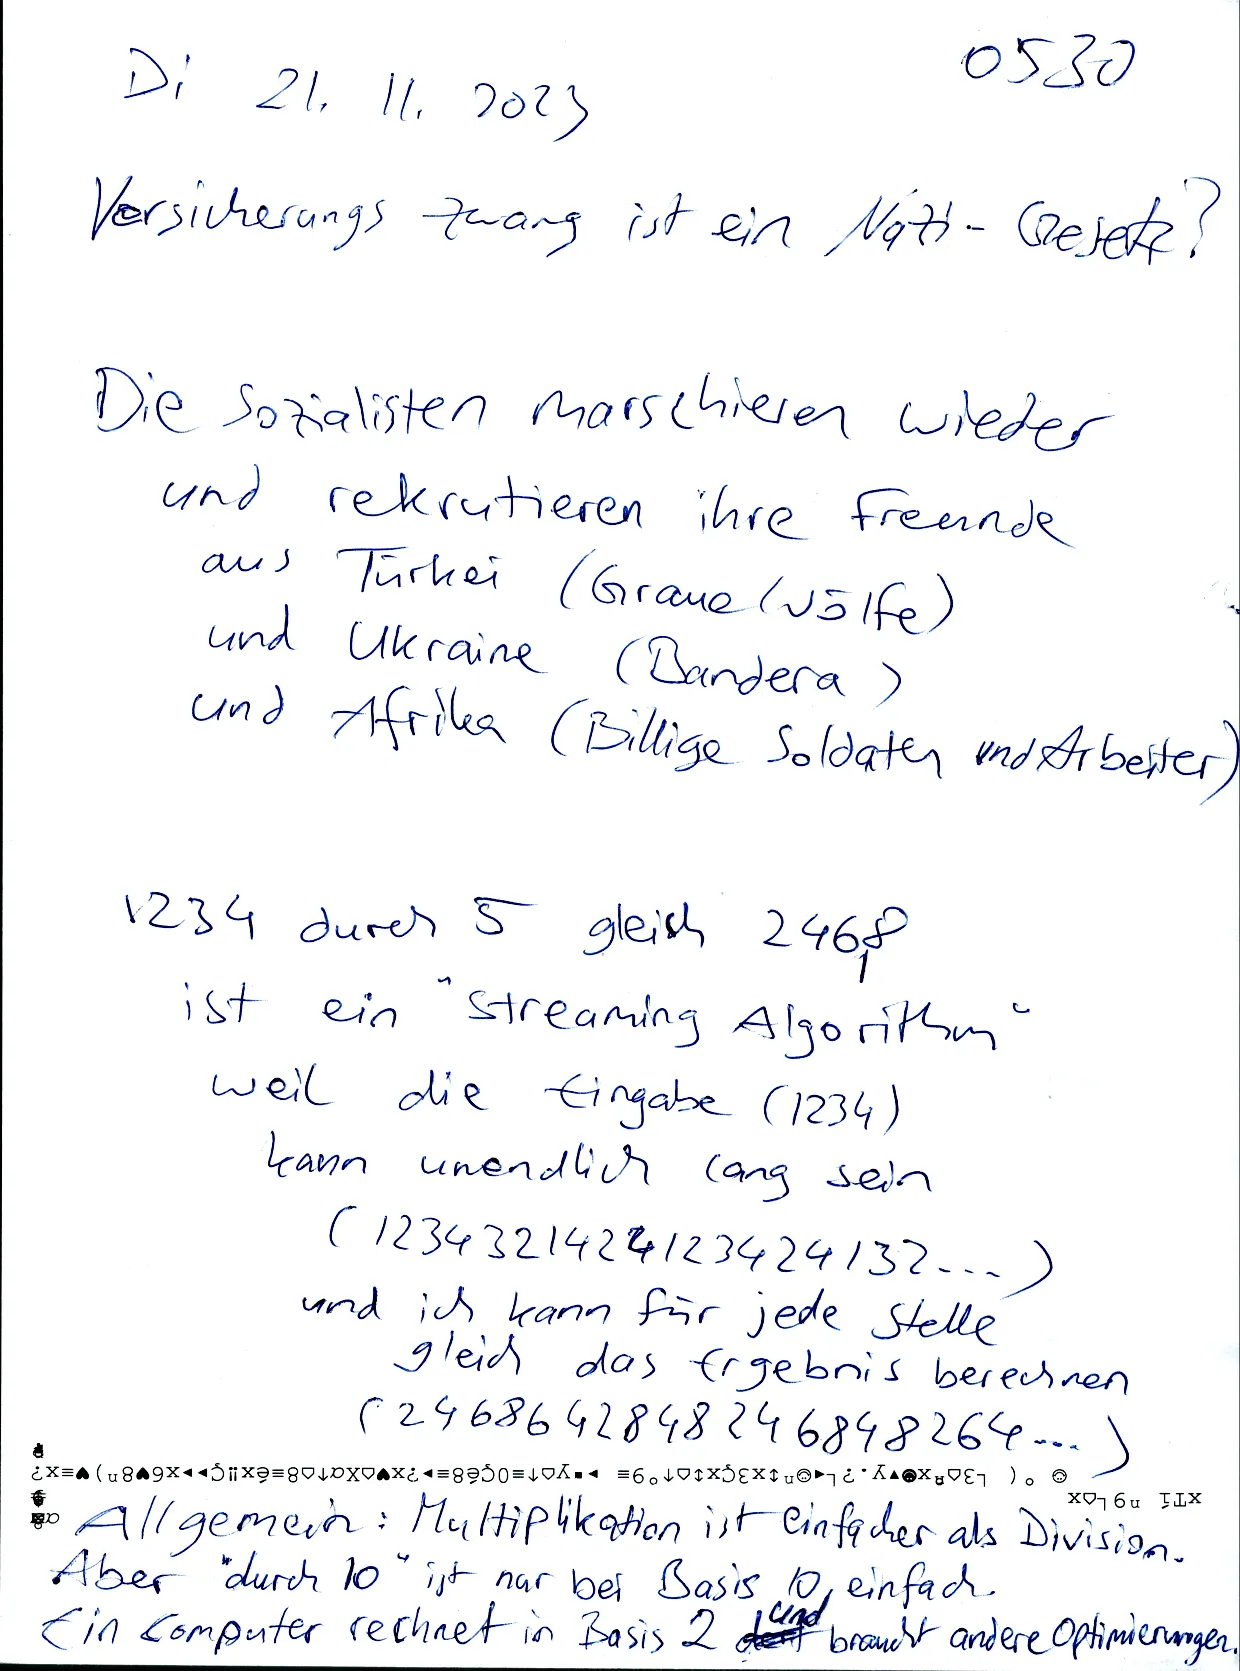 Di 21. 11. 2023
0530
Versicherungs zwang ist ein Nazi- Gesetz?
Die Sozialisten marschieren wieder
und rekrutieren ihre Freunde
aus Türkei (Graue Wölfe)
und Ukraine (Bandera)
und Afrika (Billige Soldaten und Arbeiter)
1234 durch 5 gleich 246,8
ist ein "Streaming Algorithm"
weil die Eingabe (1234)
kann unendlich lang sein
(1234321424123424132...)
und ich kann für jede Stelle
gleich das Ergebnis berechnen
(2468642848246848264...)
Allgemein: Multiplikation ist einfacher als Division.
Aber "durch 10" ist nur bei Basis 10 einfach.
Ein Computer rechnet in Basis 2 und braucht andere Optimierungen.